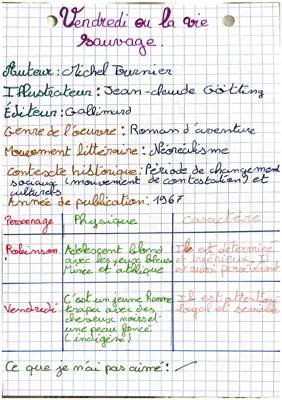 Vendredi ou la vie
sauvage.
Auteur : Michel Tournier
Illustrateur : Jean-claude Götting
Éditeur : Gallimard
Genre de l'oeuvre : Roman d'aventure
Mouvement littéraire : Néoréalisme
Contexte historique : Période de changement
sociaux (mouvement de contestation) et
culturels
Année de publication : 1967
Personnage Physique Caractère
Robinson Adolescent blond Il est déterminé
avec les yeux bleus et ingénieux. Il
Mince et athlique est aussi persévérant
Vendredi C'est un jeune homme Il est attention
trapu avec des loyal et sensible
cheveux noirs et
une peau foncé
(indigène)
Ce que je n'ai pas aimé :